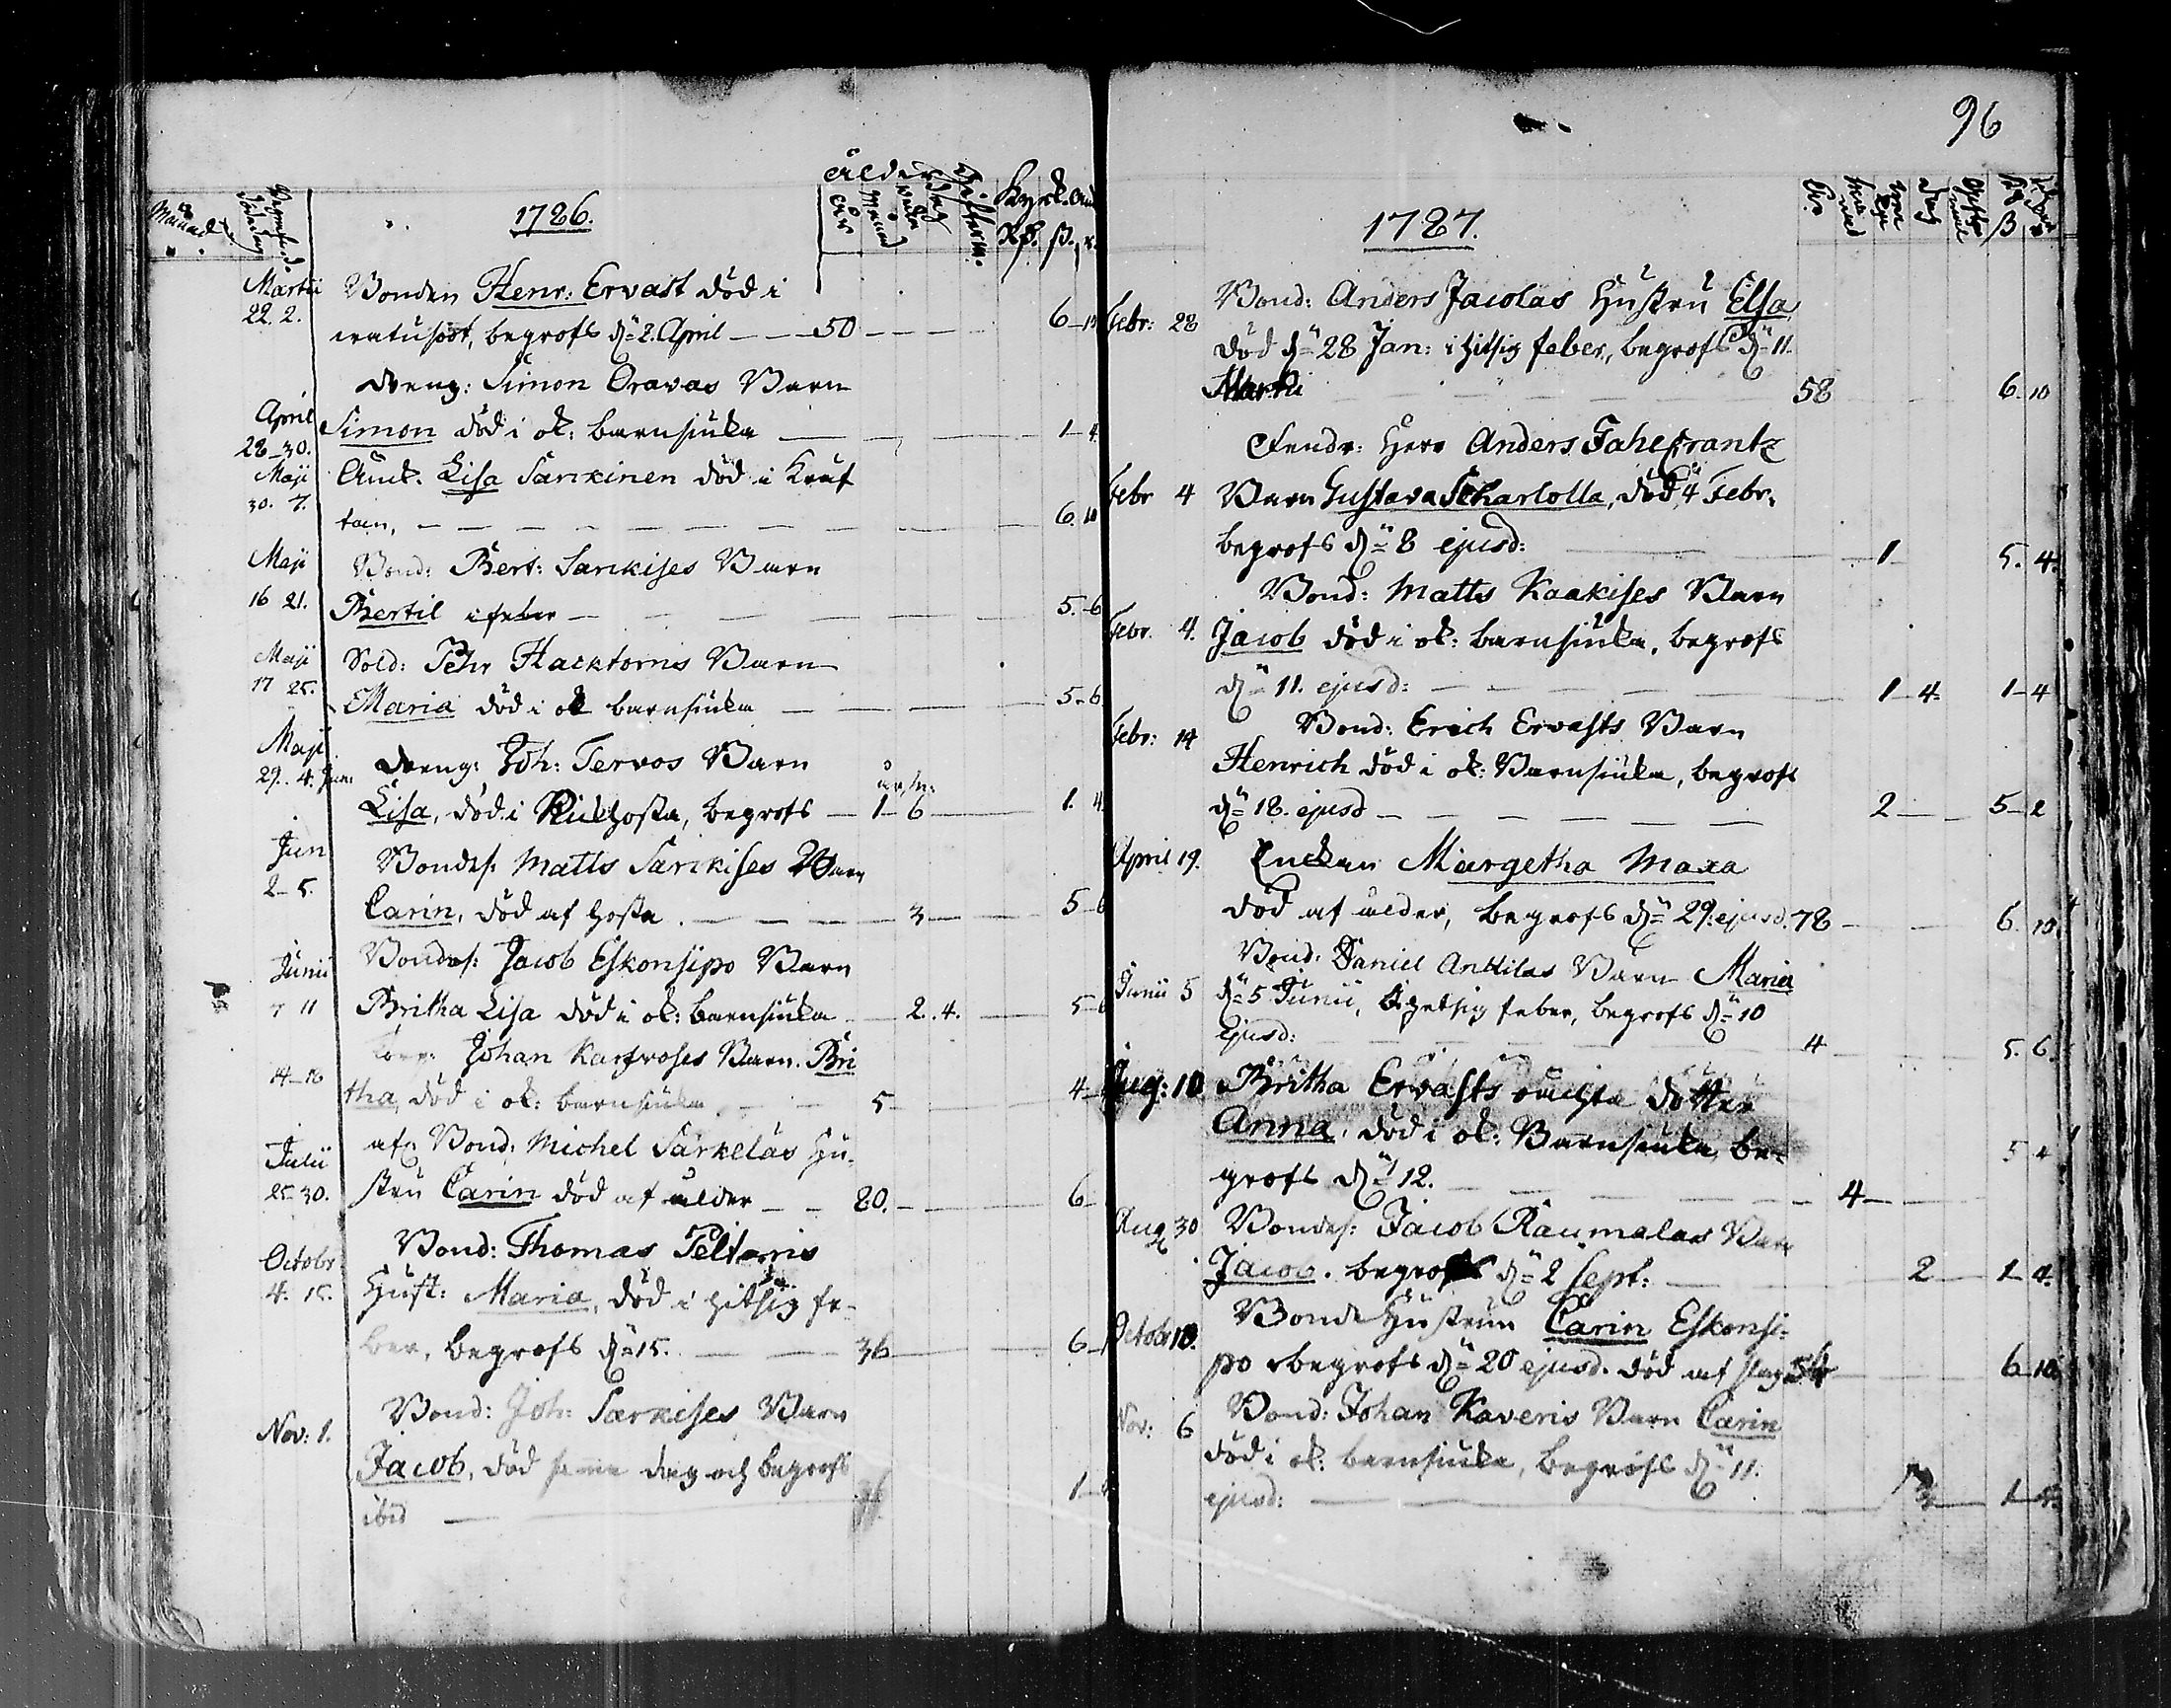 1786.
Månad
ålder
år
månad
dag
Kyrk.
Martii
22. 2.
Bonden Henr: Ervast död i
begrofs dn 2. April — 50 — 6—10
Dreng: Simon Oravas Barn
April
28—30.
Simon död i ok: barnsiuka — 1—4
Maji
30. 7.
Enck. Lisa Sarkinen död i Kräf
tan, — 6. 10
Maji
16 21.
Bond: Bert: Sarkises Barn
Bertil i feber — 5.—6
Maji
17 25.
Sold: Pehr Hacktorns Barn
Maria död i ok barnsiuka — 5—6
Maji
29. 4. Jun:
Dreng: Joh: Tervos Barn
Lisa, död i Kikhosta, begrofs — 1—6 — 1. 4
Jun
2—5.
Bondes: Matts Sarkises Barn
Carin, död af hosta. — 3 — 5—6
Junii
7 11
Bondes: Jacob Eskonsipo Barn
Britha Lisa död i ok: barnsiuka — 2. 4. — 5—6
Johan Karfvoses Barn. Bri
14—16
tha, död i ok: barnsiuka — 5 — 4—
Julii
25—30.
afs. Bond: Michel Särkeläs Hu-
stru Carin död af ålder — 80. — 6—
Octobr
4. 15.
Bond: Thomas Peltaris
Hust: Maria, död i hitsig fe-
ber, begrofs dn 15. — 36 — 6—
Nov: 1.
Bond: Joh: Sarkises Barn
Jacob, död samma dag och begrofs
ibid — 1—4
96
1787.
Febr: 28
Bond: Anders Jacolas Hustru Elsa
död dn 28 Jan: i hitsig feber, begrofs dn 11.
Martii — 58 — 6—10
Fendr: Herr Anders Fahlcrantz
Febr 4
Barn Gustava Scharlotta, död 4 Febr.
begrofs dn 8 ejusd: — 1 — 5. 4.
Bond: Matts Kaakises Barn
Febr. 4.
Jacob död i ok: barnsiuka, begrofs
dn 11. ejusd: — 1—4 — 1—4
Febr: 14
Bond: Erich Ervasts Barn
Henrich död i ok: Barnsiuka, begrofs
dn 18. ejusd — 2 — 5—2
April 19.
Enckan Margetha Maxa
död af ålder, begrofs dn 29: ejusd. 78 — 6. 10
Bond: Daniel Anttilas Barn Maria
Junii 5
dn 5 Junii, i hetsig feber, begrofs dn 10
ejusd: — 4 — 5. 6.
Aug: 10
Britha Ervasts oächta dotter
Anna, död i ok: Barnsiuka, be-
grofs dn 12. — 4 — 5 4
Aug 30
Bondes: Jacob Raumalas Barn
Jacob. begrofs dn 2 Sept: — 2 — 1—4.
Octobr 10.
Bonde Hustrun Carin Eskonsi-
po begrofs dn 20 ejusd. död af slag 54 — 6—10
Nov: 6
Bond: Johan Kaveris Barn Carin
död i ok: barnsiuka, begrofs dn 11.
ejusd: — 1—4